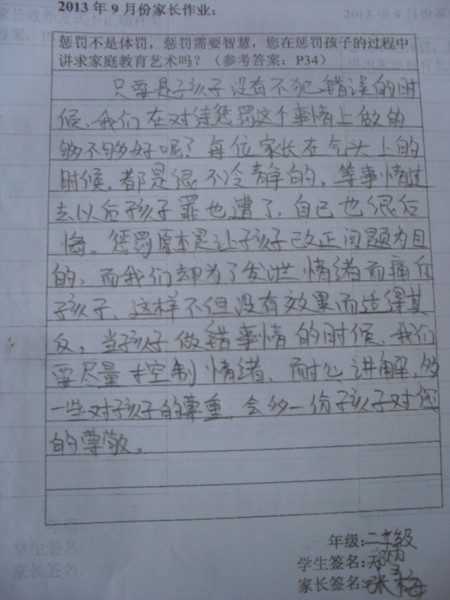 2013 年 9 月份家长作业:
惩罚不是体罚，惩罚需要智慧，您在惩罚孩子的过程中
讲求家庭教育艺术吗？（参考答案：P34）
只要是孩子没有不犯错误的时
候，我们在对待惩罚这个事情上做的
够不够好呢？每位家长在气头上的
时候，都是很不冷静的，等事情过
去以后孩子罪也遭了，自己也很后
悔。惩罚原本是让孩子改正问题为目
的，而我们却为了发泄情绪而痛斥
孩子，这样不但没有效果而适得其
反，当孩子做错事情的时候，我们
要尽量控制情绪，耐心讲解，多
一些对孩子的尊重，会多一份孩子对您
的尊敬。
年级:二年级
学生签名:郑
家长签名:张梅
学生签名:
家长签名: